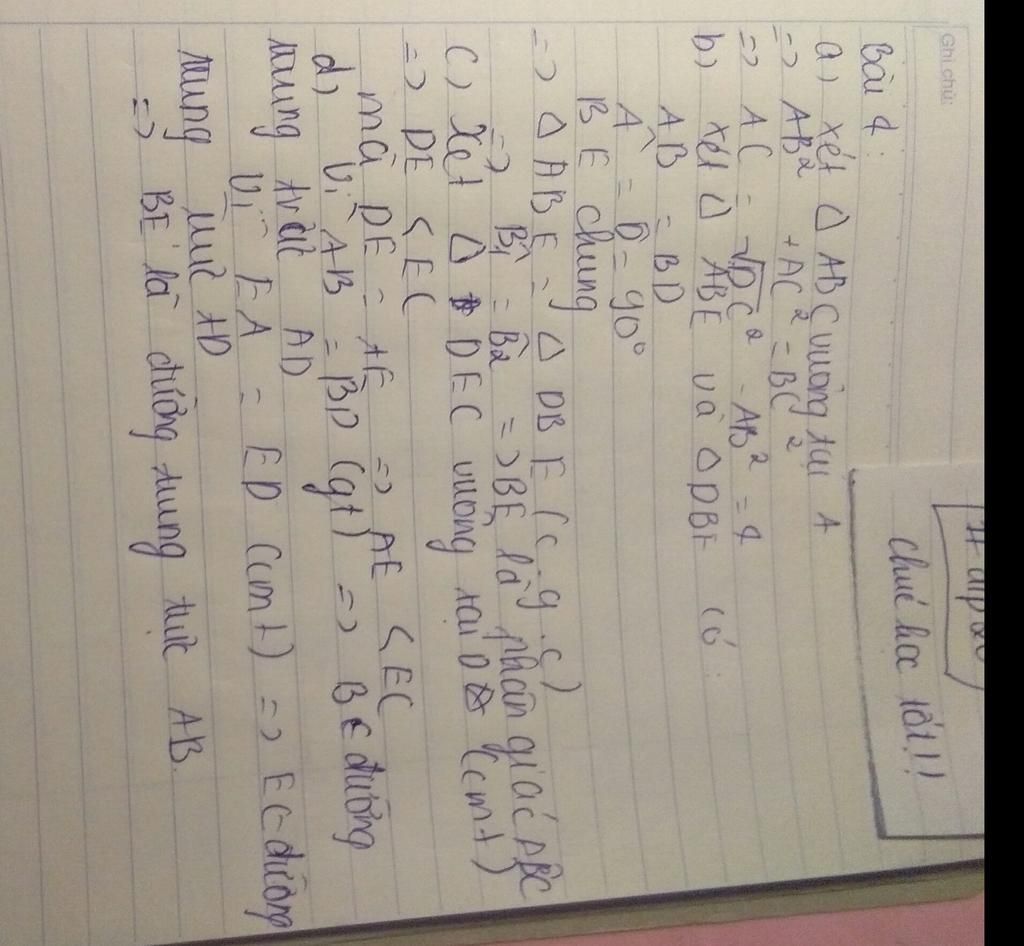 Ghi chú:
chúc học tốt!!
Bài 4:
a) xét Δ ABC vuông tại A
=> AB² + AC² = BC²
=> AC = √DC² - AB² = 4
b) xét Δ ABE và Δ DBE có:
AB = BD
Â = D̂ = 90°
BE chung
=> Δ ABE = Δ DBE (c.g.c)
=> B̂1 = B̂2 => BE là phân giác ABC
c) Xét Δ DEC vuông tại D (cmt)
=> DE < EC
mà DE = AE => AE < EC
d) Vì AB = BD (gt) => B ∈ đường
trung trực AD
Vì EA = ED (cmt) => E ∈ đường
trung trực AD
=> BE là đường trung trực AB.